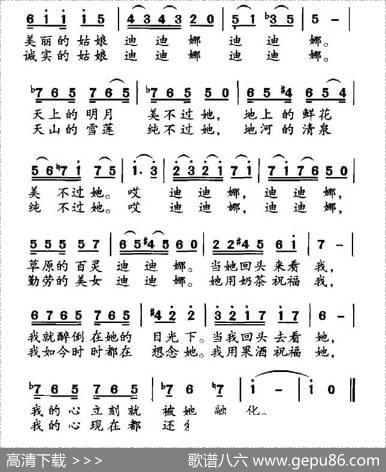 6 i i i 5 | 4 3 4 3 2 0 | 5 1 ♭3 5 | 5 - |
美丽的姑娘 迪迪娜 迪迪娜。
诚实的姑娘 迪迪娜 迪迪娜。
♭7 6 5 7 6 5 | ♭7 6 5 5 0 | 6 5 ♯4 6 5 4 |
天上的明月 美不过她, 地上的鲜花
天山的雪莲 纯不过她, 地河的清泉
5 6 ♮7 i 7 5 | i· 3 | 2 3 2 1 7 i | 7 i 7 6 5 0 |
美不过她。 哎 迪迪娜, 迪迪娜,
纯不过她。 哎 迪迪娜, 迪迪娜,
5 5 5 5 7 | 6 5 ♯4 5 6 0 | 2 2 ♯4 5 6 i | 7 - |
草原的百灵 迪迪娜。 当她回头来看我,
勤劳的美女 迪迪娜。 她用奶茶祝福我,
6 7 6 5 7 6 5 | ♯4 2 2 | 3 2 1 7 i 7 6 | 7 - |
我就醉倒在她的 目光下。 当我回头去看她,
我如今时时都在 想念她。 我用果酒祝福她,
♭7 6 5 7 6 5 | ♭7 6 ♮7 | i - | i 0 ‖
我的心立刻就 被她融化。
我的心现在都 还
高清下载 >>>
歌谱八六 www.gepu86.com